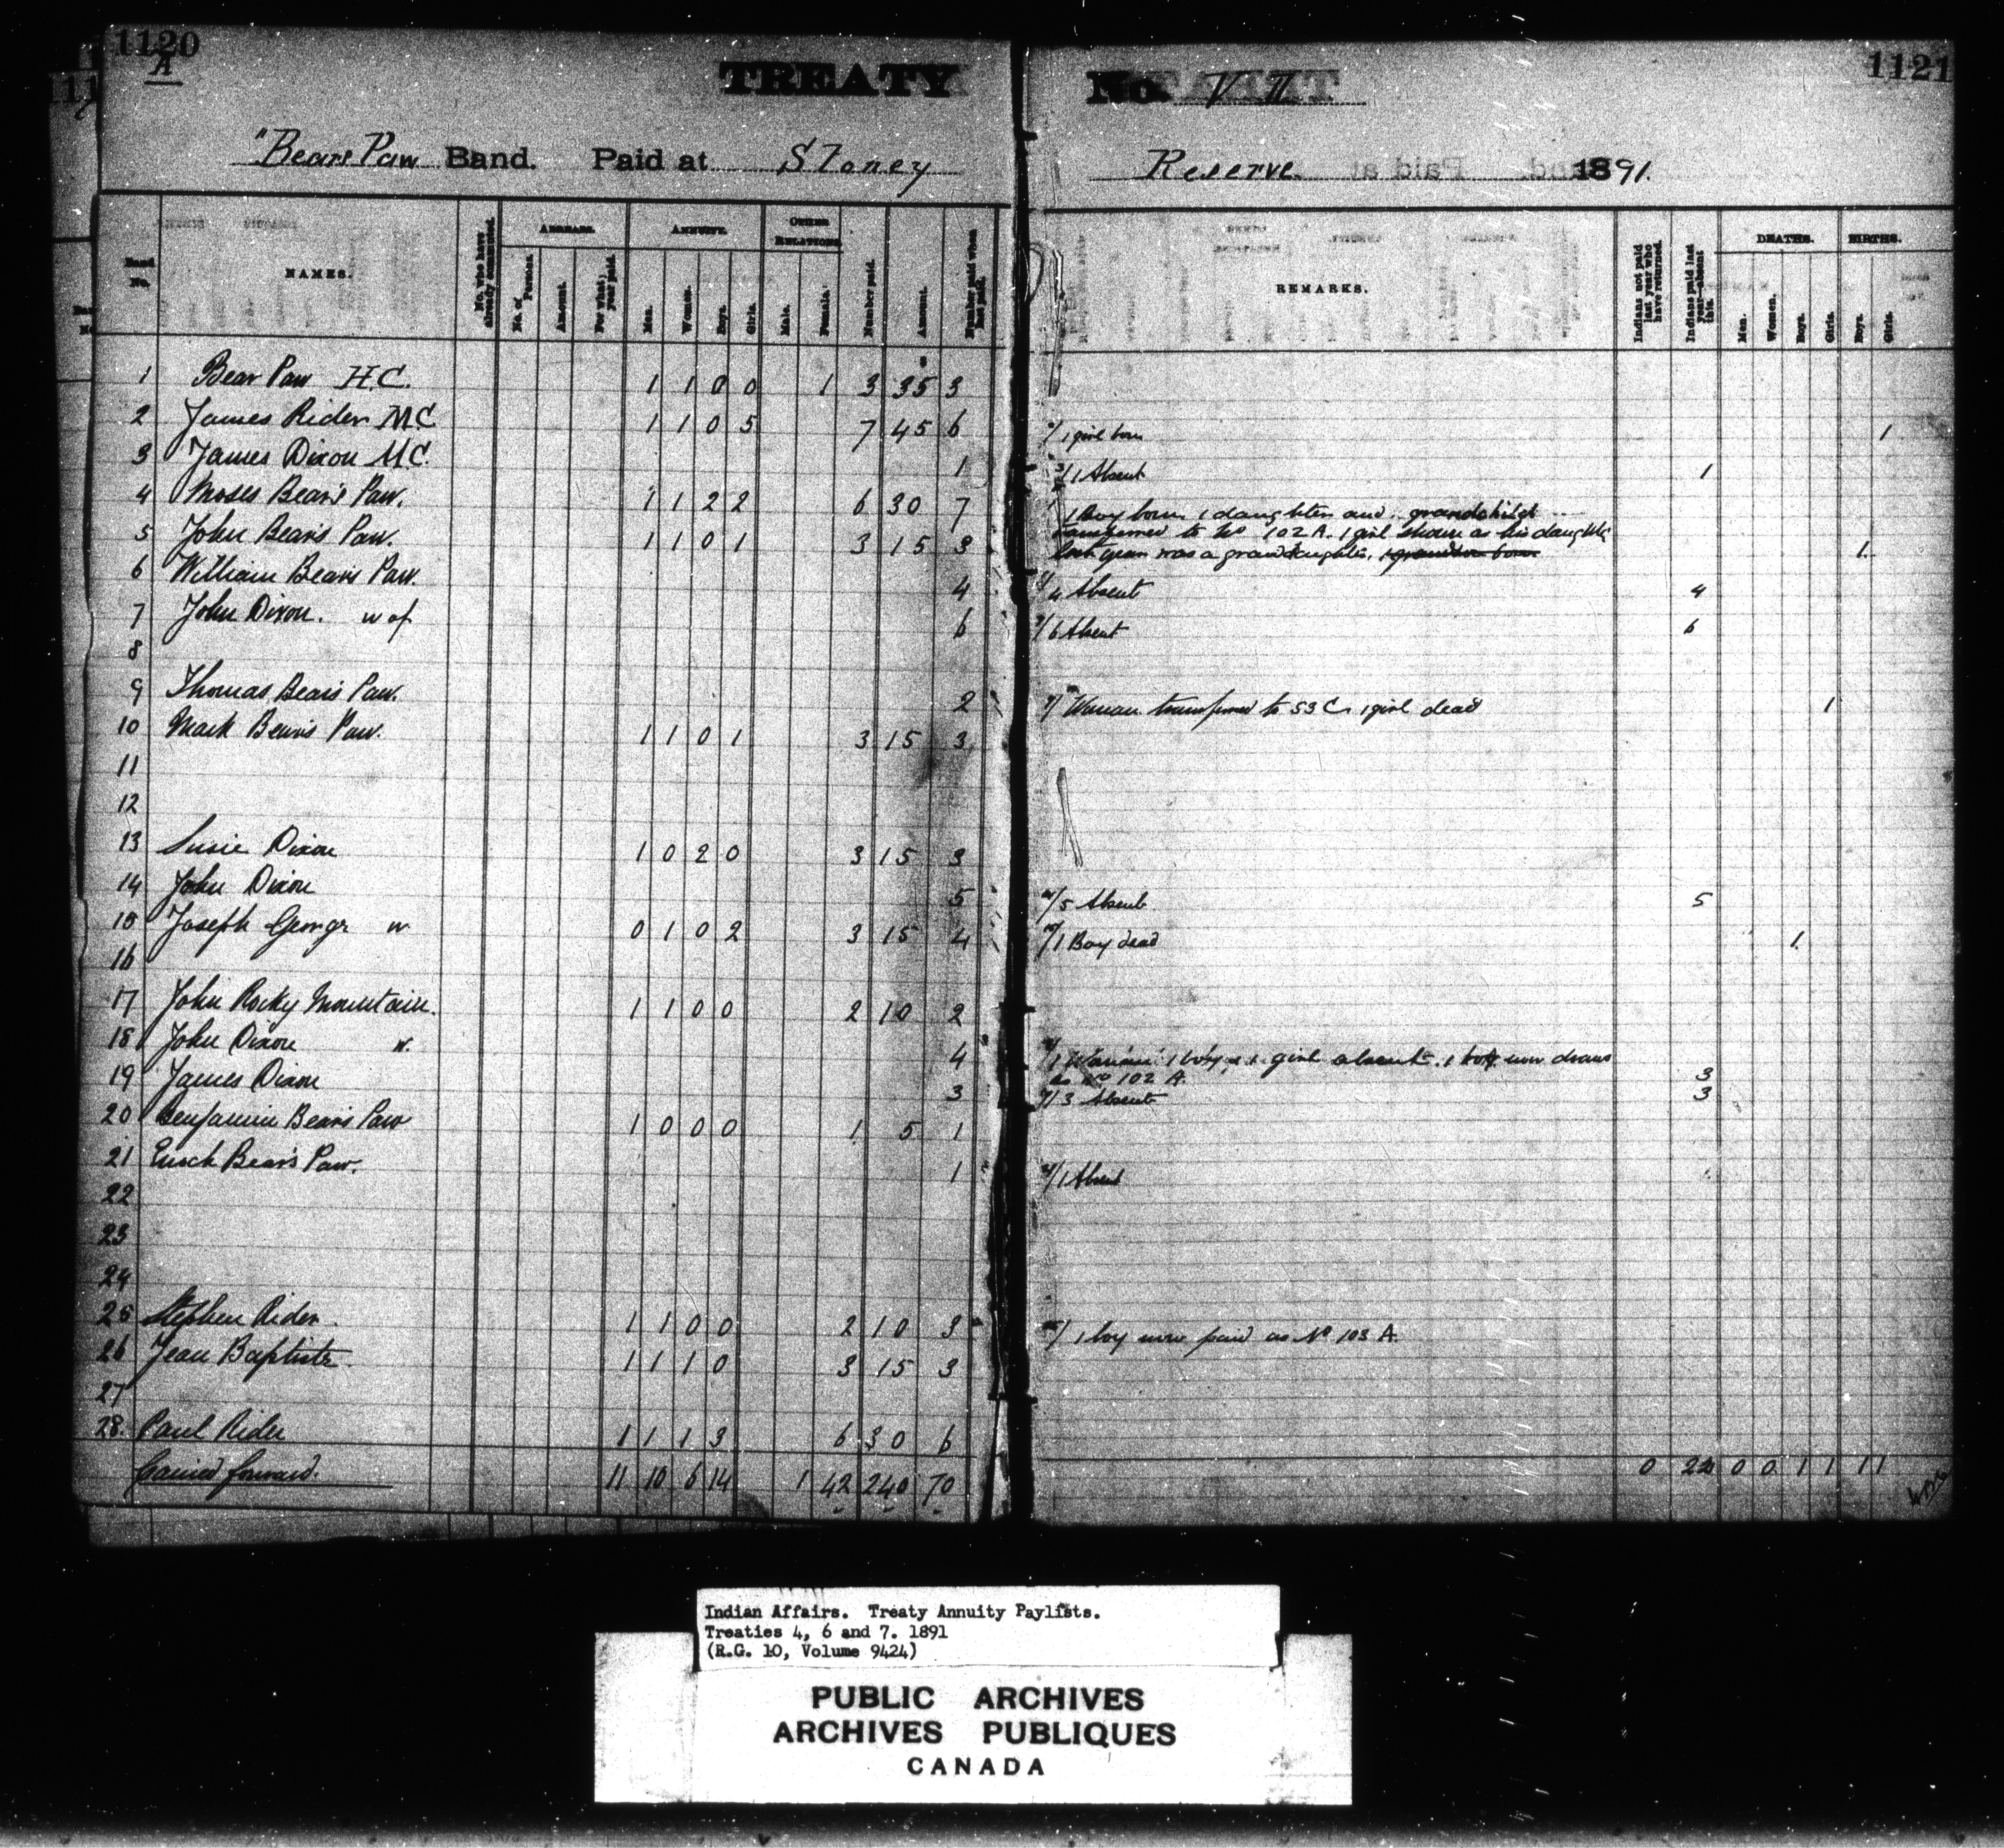 1120
A
1121
TREATY No. VII
"Bears Paw Band. Paid at Stoney Reserve. 1891.
Band No. NAMES. No. who have already commuted. ARREARS. No. of Persons. Amount. For what year paid. ANNUITY. Men. Women. Boys. Girls. OTHER RELATIONS. Male. Female. Number paid. Amount. Number paid when last paid. REMARKS. Indians not paid last year who have returned. Indians paid last year—absent this. DEATHS. Men. Women. Boys. Girls. BIRTHS. Boys. Girls.
1 Bear Paw H.C. 1 1 0 0 1 3 35 3
2 James Rider M.C 1 1 0 5 7 45 6 2/ 1 girl born 1
3 James Dixon M.C. 1 3/ 1 Absent 1
4 Moses Bear's Paw. 1 1 2 2 6 30 7 1 Boy born, 1 daughter and grandchild
transferred to No 102 A. 1 girl shown as his daughter
last year was a granddaughter, 1 grandson born 1.
5 John Bear's Paw. 1 1 0 1 3 15 3
6 William Bear's Paw. 4 6/ 4 Absent 4
7 John Dixon. w of 6 7/ 6 Absent 6
8
9 Thomas Bear's Paw. 2 9/ Woman transferred to 53 C 1 girl dead 1
10 Mark Bear's Paw. 1 1 0 1 3 15 3
11
12
13 Susie Dixon 1 0 2 0 3 15 3
14 John Dixon 5 14/ 5 Absent 5
15 Joseph George w 0 1 0 2 3 15 4 15/ 1 Boy dead 1.
16
17 John Rocky Mountain. 1 1 0 0 2 10 2
18 John Dixon w. 4 18/ 1 Woman 1 boy & 1 girl absent. 1 boy now draws
as No 102 A. 3
19 James Dixon 3 19/ 3 Absent 3
20 Benjamin Bear's Paw 1 0 0 0 1 5 1
21 Enoch Bear's Paw. 1 21/ 1 Absent
22
23
24
25 Stephen Rider. 1 1 0 0 2 10 3 25/ 1 boy now paid as No 103 A.
26 Jean Baptiste. 1 1 1 0 3 15 3
27
28. Paul Rider 1 1 1 3 6 30 6
Carried forward. 11 10 6 14 1 42 240 70 0 0 0 1 1 1 1
Indian Affairs. Treaty Annuity Paylists.
Treaties 4, 6 and 7. 1891
(R.G. 10, Volume 9424)
PUBLIC ARCHIVES
ARCHIVES PUBLIQUES
CANADA